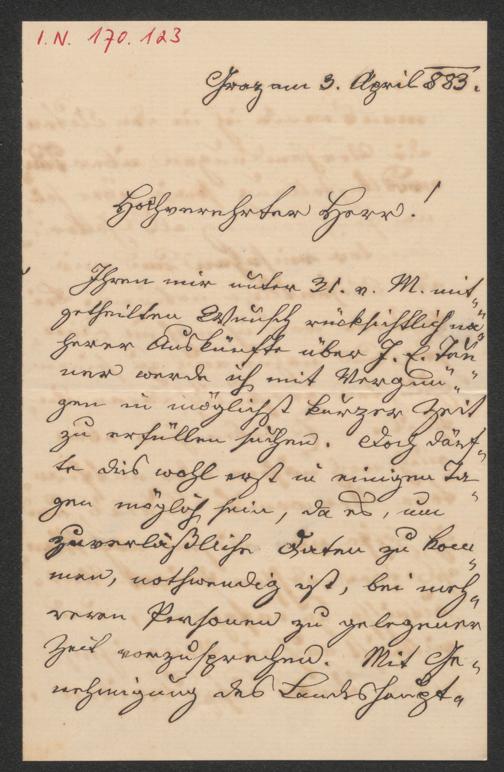 I.N. 170.123
Graz am 3. April 883.
Hochverehrter Herr!
Ihren mir unter 31. v. M. mit„
getheilten Wunsch rücksichtlich nä„
herer Auskünfte über J. E. Tau„
ner werde ich mit Vergnü„
gen in möglichst kurzer Zeit
zu erfüllen suchen. Doch dürf„
te dies wohl erst in einigen Ta„
gen möglich sein, da es, um
zuverläßliche Daten zu kom„
men, nothwendig ist, bei meh„
reren Personen zu gelegener
Zeit vorzusprechen. Mit Ge„
nehmigung des Landeshaupt„